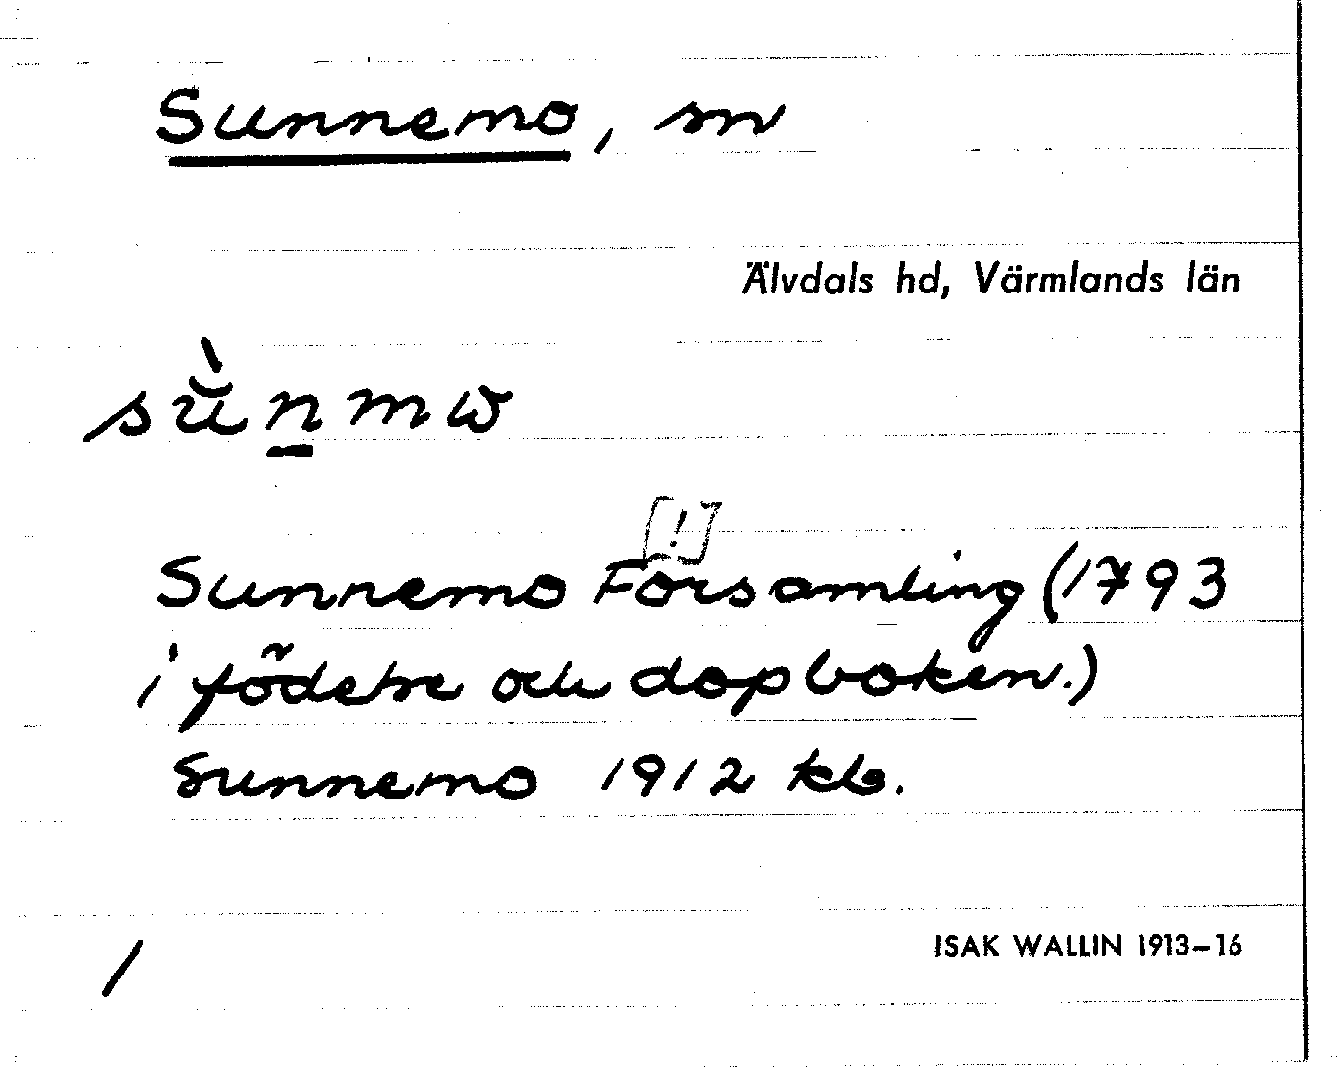 Sunnemo, sn
Älvdals hd, Värmlands län
sŭ̀n̲mω
[!]
Sunnemo Församling (1793
i födelse och dopboken.)
Sunnemo 1912 kb.
ISAK WALLIN 1913–16
/